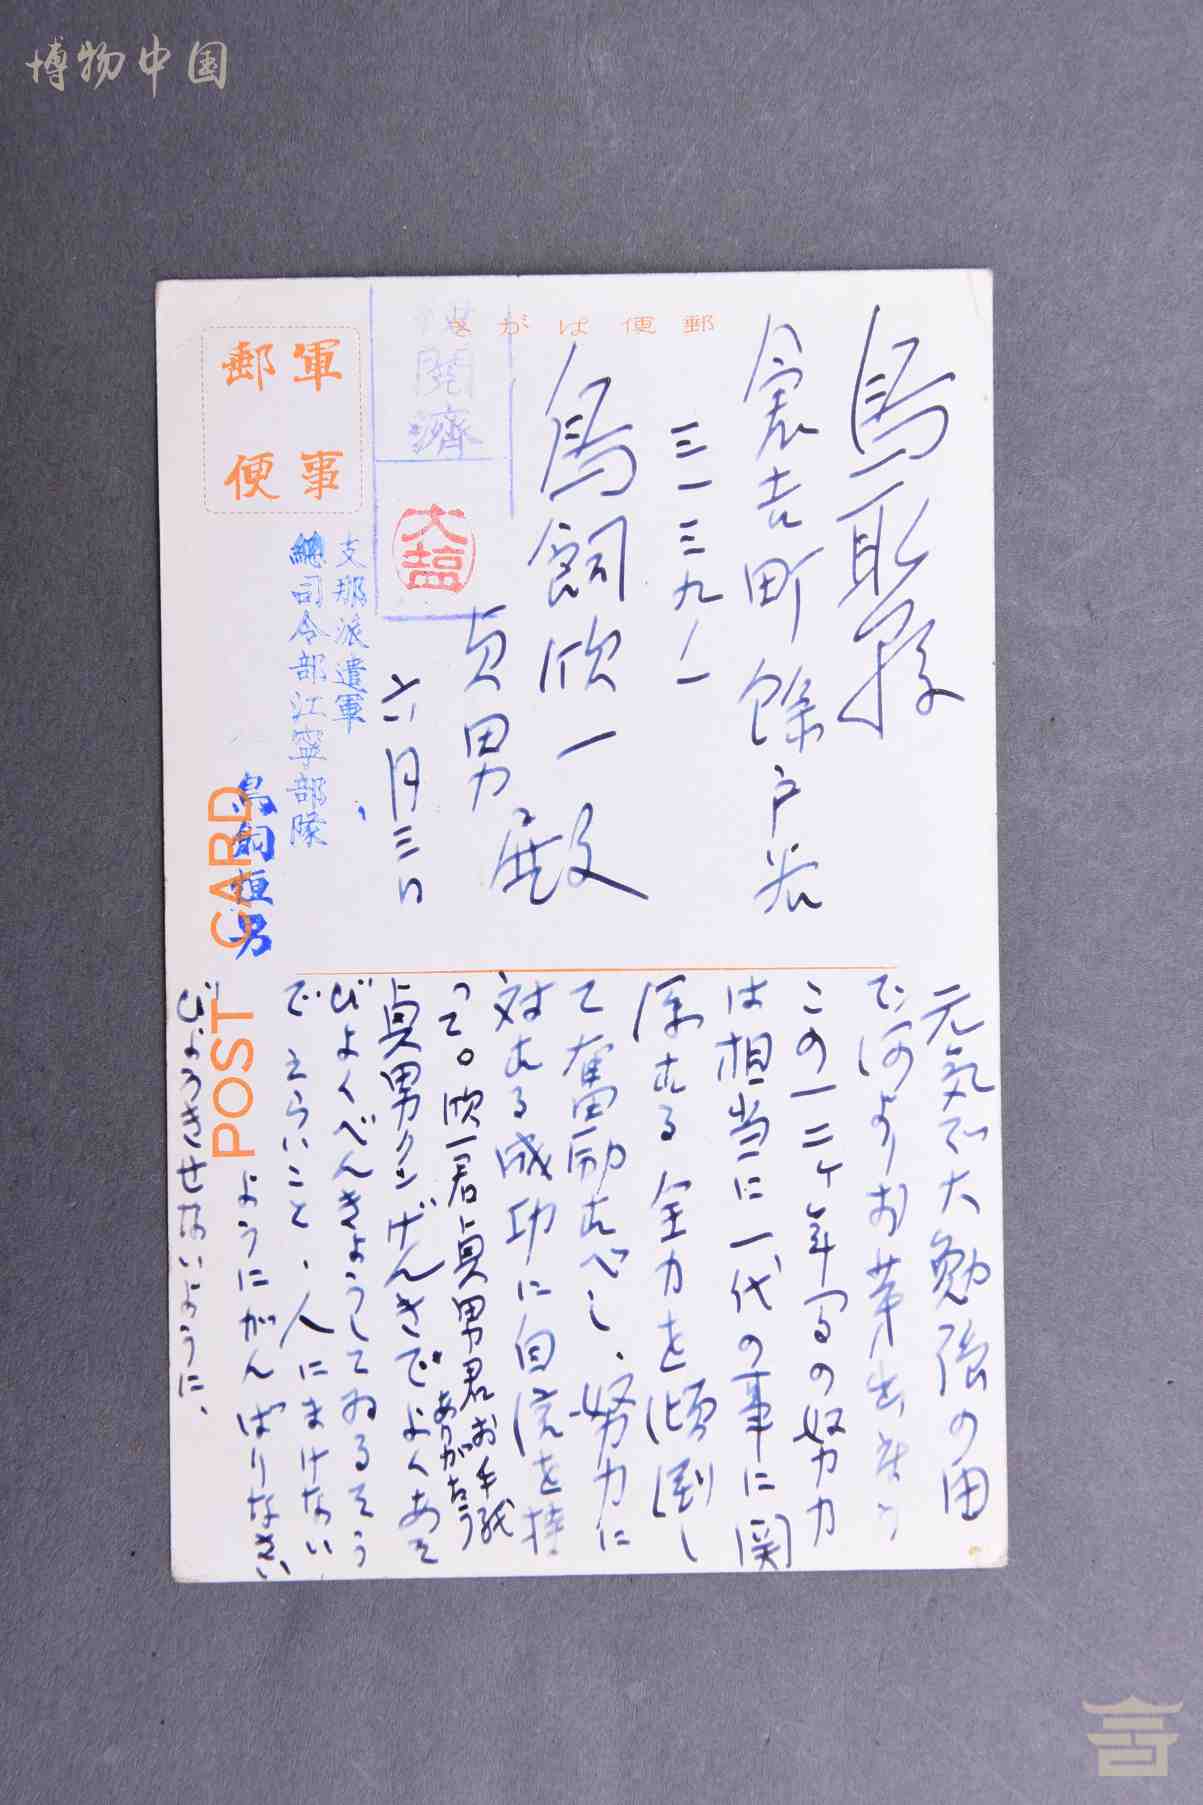 博物中国
郵便はがき
軍事
郵便
検閲濟
大塩
鳥取縣
倉吉町餘戸谷
三一三九ノ一
鳥飼欣一
貞男殿
六月三日
支那派遣軍
總司令部江寧部隊
鳥飼恒男
POST CARD
元気で大勉強の由
で何よりお芽出度う
この一二ヶ年間の努力
は相当に一代の事に関
係する全力を傾倒し
て奮励すべし、努力に
対する成功に自信を持
って。欣一君貞男君お手紙
ありがたう
貞男クンげんきでよくあそ
びよくべんきようしてゐるそう
でえらいこと、人にまけない
ようにがんばりなさい
びようきせないように、